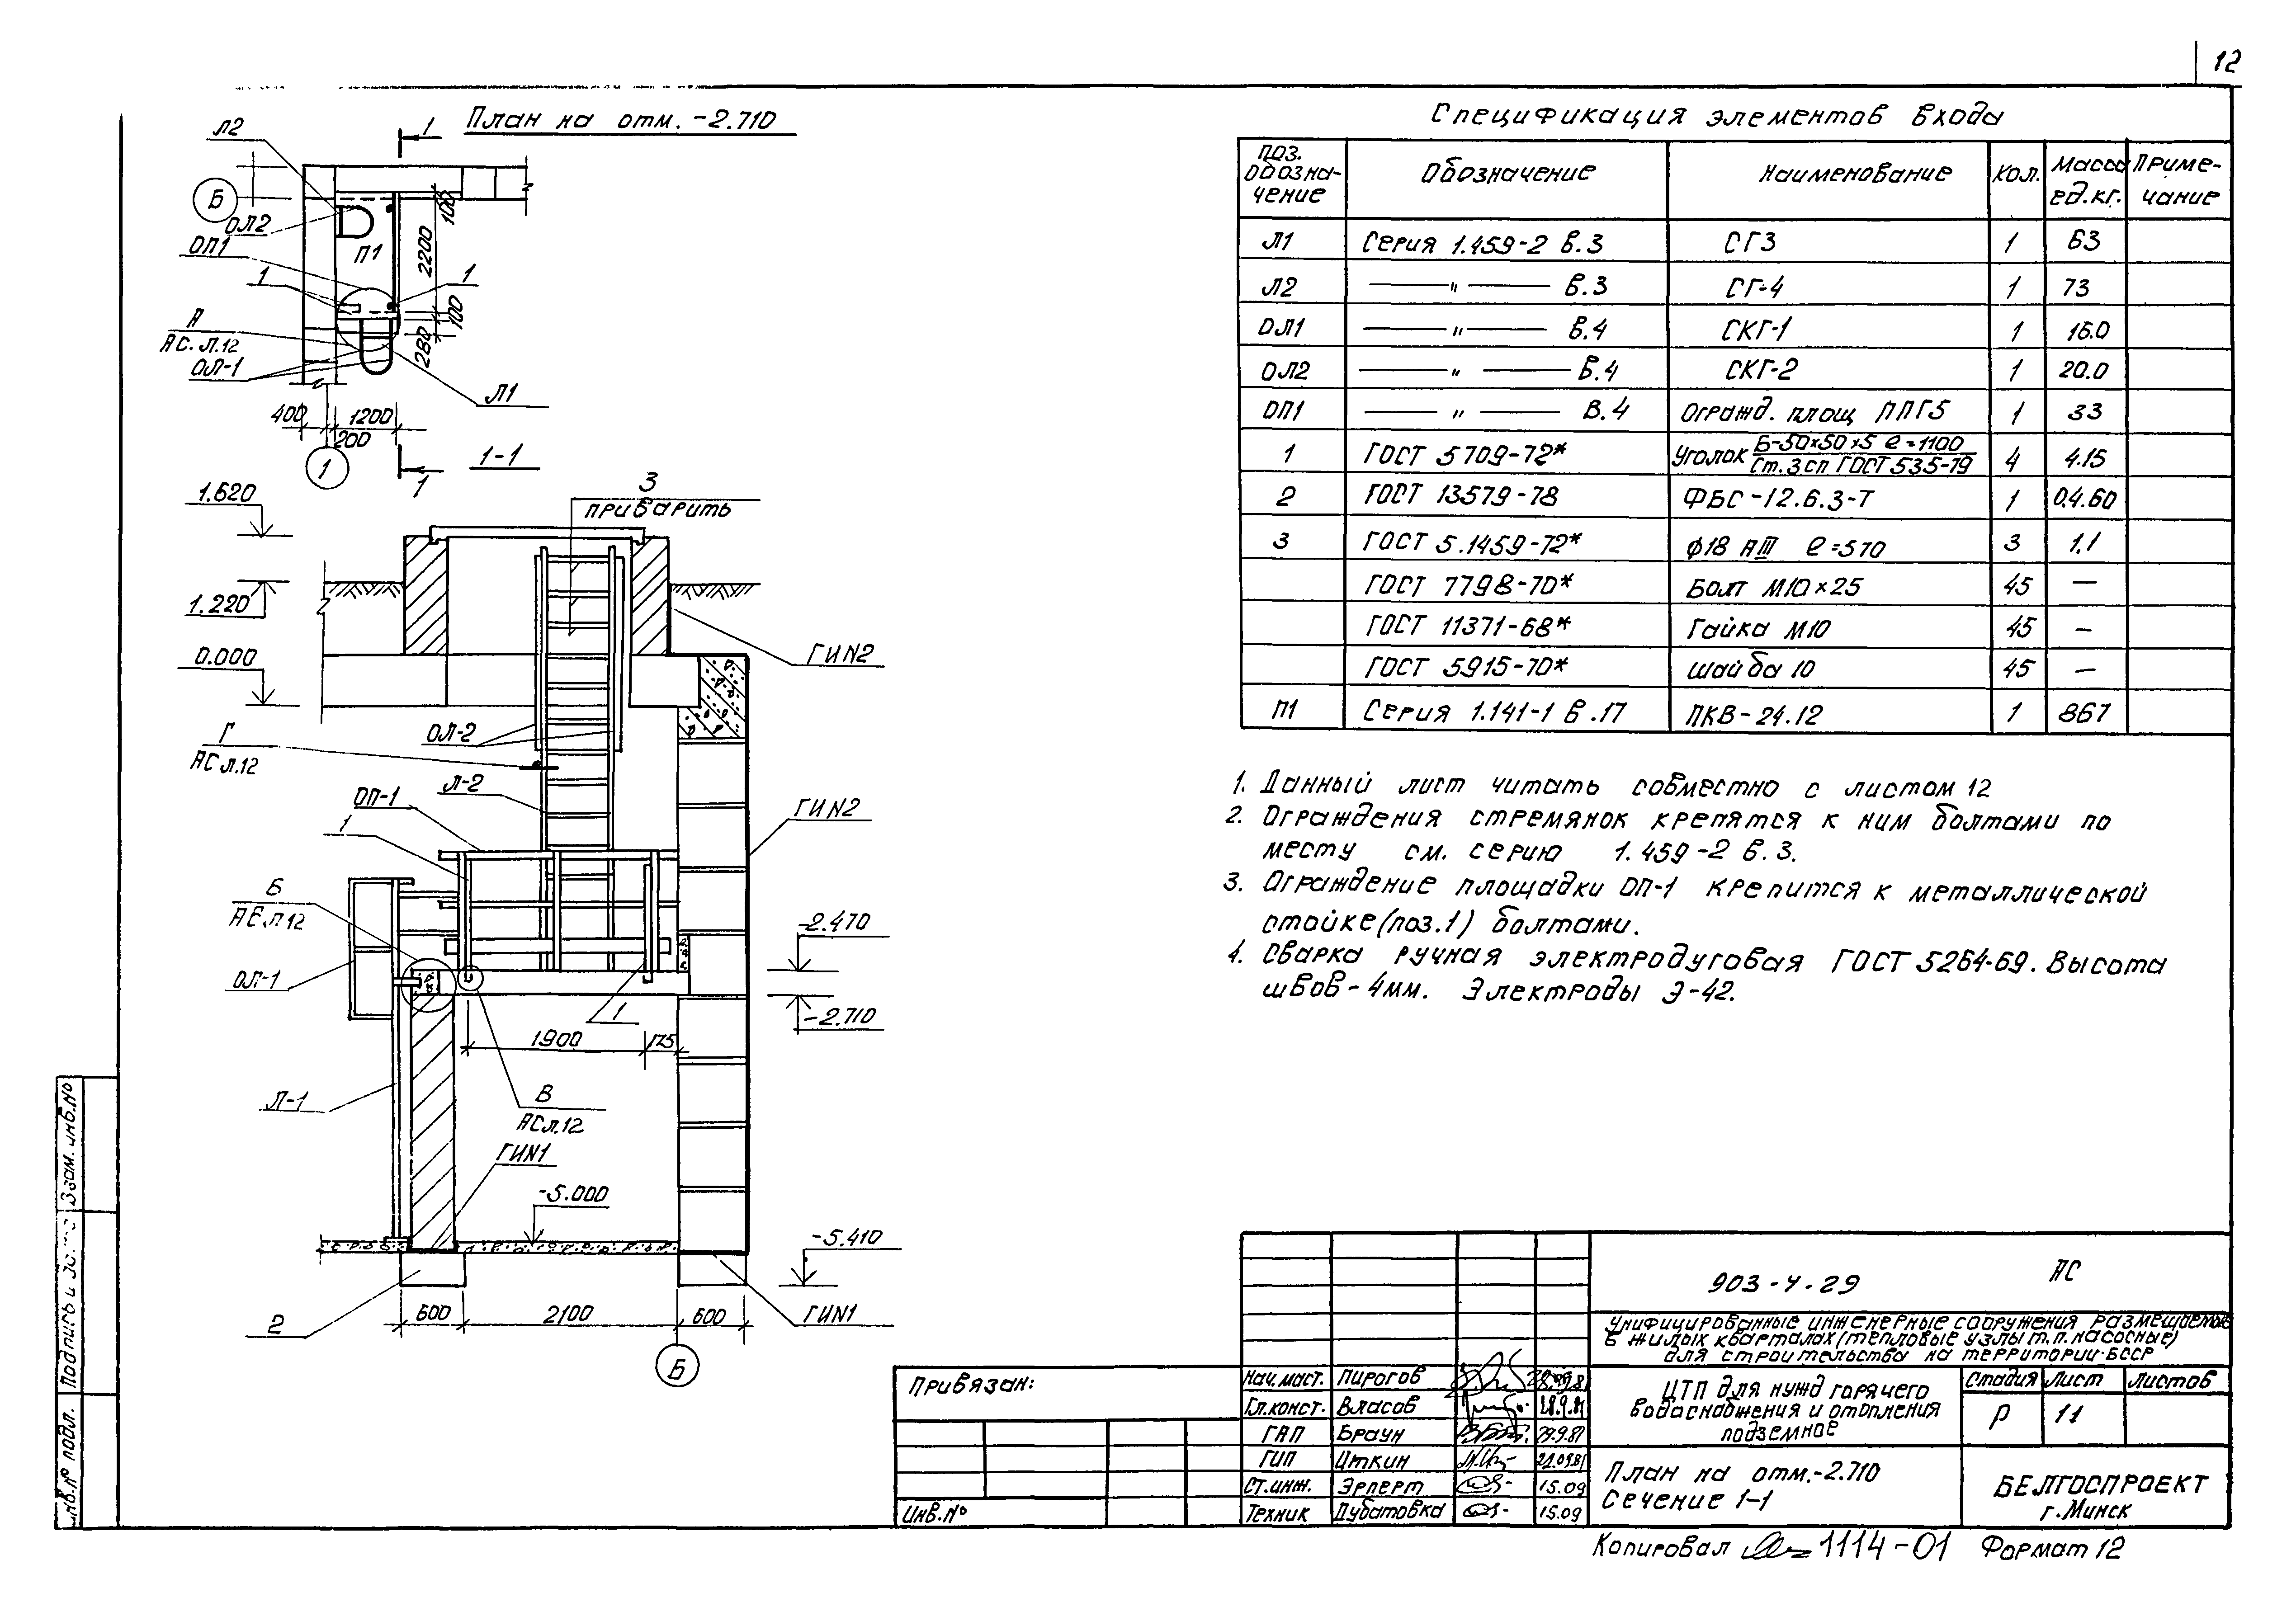 12
План на отм. -2.710
1
Л2
Б
ОЛ2
ОП1
П1
1
1
А
АС. л.12
ОЛ-1
Л1
100
2200
100
280
400
1200
200
1
1
1-1
3
приварить
1.620
1.220
0.000
ГИN2
ОЛ-2
Г
АС л.12
Л-2
ОП-1
ГИN2
1
Б
АС л 12
ОЛ-1
-2.470
-2.710
1
1900
175
Л-1
В
АСл.12
ГИN1
-5.000
-5.410
2
600
2100
600
ГИN1
Б
Спецификация элементов входа
поз. обозначение Обозначение Наименование Кол. Масса ед.кг. Примечание
Л1 Серия 1.459-2 в.3 СГ3 1 63
Л2 —— " —— в.3 СГ-4 1 73
ОЛ1 —— " —— в.4 СКГ-1 1 16.0
ОЛ2 —— " —— в.4 СКГ-2 1 20.0
ОП1 —— " —— в.4 Огражд. площ ППГ5 1 33
1 ГОСТ 5709-72* Уголок Б-50×50×5 ℓ=1100 Ст.3сп ГОСТ 535-79 4 4.15
2 ГОСТ 13579-78 ФБС-12.6.3-Т 1 0.4.60
3 ГОСТ 5.1459-72* ф18 АIII ℓ=570 3 1.1
ГОСТ 7798-70* Болт М10×25 45 —
ГОСТ 11371-68* Гайка М10 45 —
ГОСТ 5915-70* шайба 10 45 —
П1 Серия 1.141-1 в.17 ПКВ-24.12 1 867
1. Данный лист читать совместно с листом 12
2. Ограждения стремянок крепятся к ним болтами по
месту см. серию 1.459-2 в.3.
3. Ограждение площадки ОП-1 крепится к металлической
стойке (поз.1) болтами.
4. Сварка ручная электродуговая ГОСТ 5264-69. Высота
швов-4мм. Электроды Э-42.
Взам. инв.№
Подпись и
Инв.№ подл.
Привязан:
Инв.№
Нач.маст. Пирогов
Гл.конст. Власов 28.9.81
ГАП Браун 29.9.81
ГИП Иткин 21.09.81
Ст.инж. Эрперт 15.09
Техник Дубатовка 15.09
903-4-29 АС
Унифицированные инженерные сооружения размещаемые
в жилых кварталах (тепловые узлы т.п. насосные)
для строительства на территории БССР
ЦТП для нужд горячего
водоснабжения и отопления
подземное
Стадия Лист Листов
Р 11
План на отм.-2.710
Сечение 1-1
БЕЛГОСПРОЕКТ
г. Минск
Копировал 1114-01 Формат 12